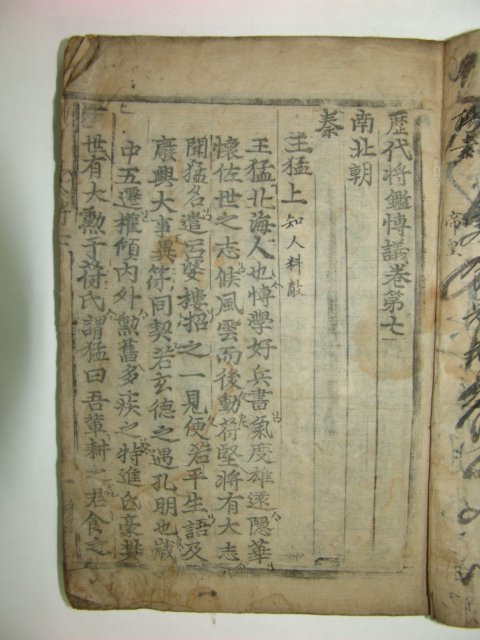 歴代将鑑博議巻第七
南北朝
秦
王猛上 知人料敵
王猛北海人也博學好兵書氣度雄遠隠華
懐佐世之志候風雲而後動苻堅将有大志
聞猛名遣呂婆樓招之一見便若平生語及
廢興大事異符同契若玄德之遇孔明也歳
中五遷權傾内外勲舊多疾之特進氐豪樊
世有大勲于苻氏謂猛曰吾軰耕之君食之
帝皇